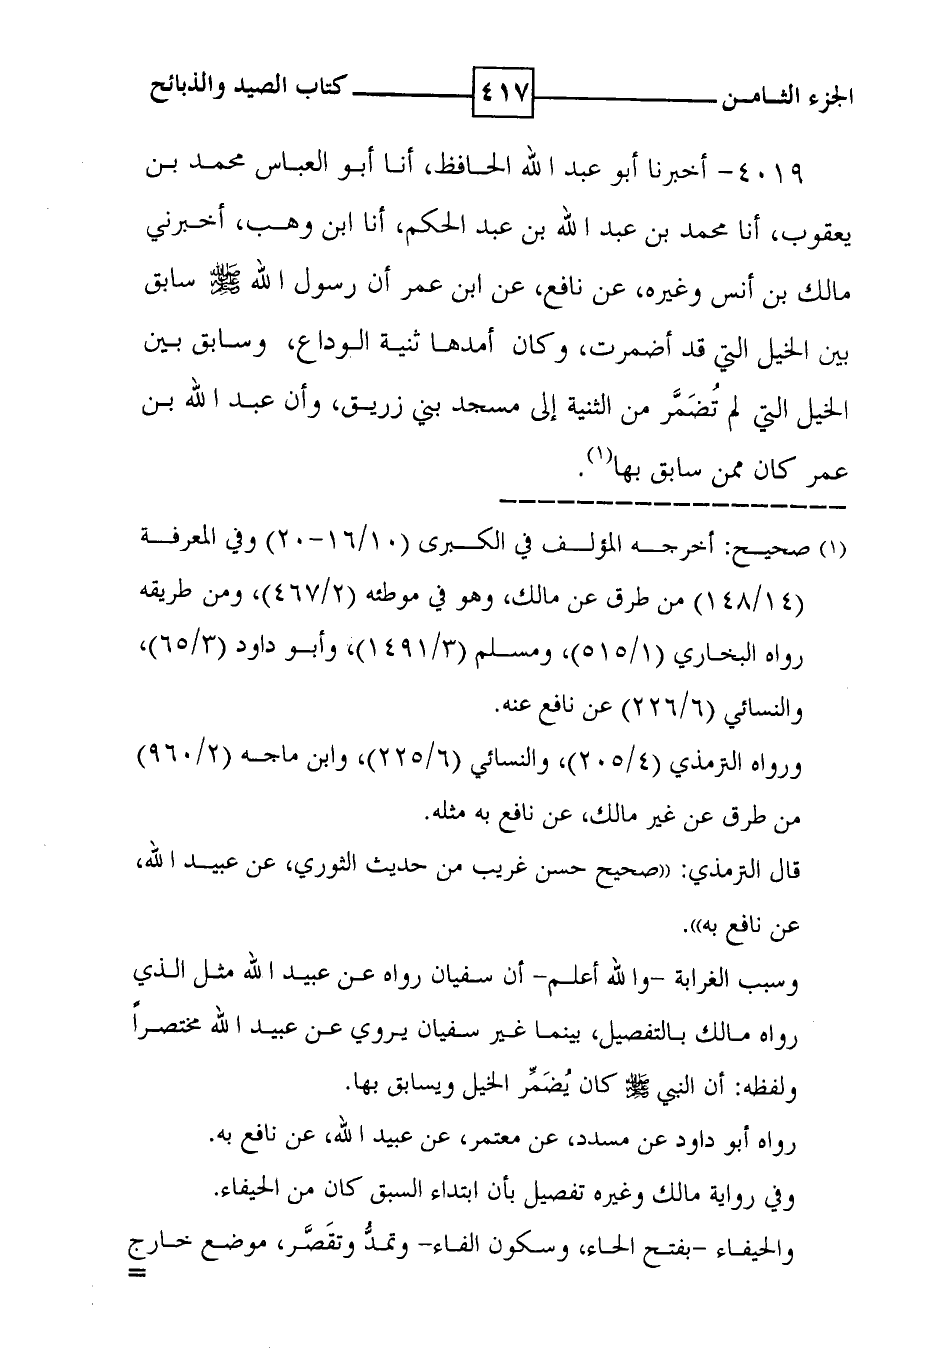 الجزء الثامن ٤١٧ كتاب الصيد والذبائح
٤٠١٩- أخبرنا أبو عبد الله الحافظ، أنا أبو العباس محمد بن
يعقوب، أنا محمد بن عبد الله بن عبد الحكم، أنا ابن وهب، أخبرني
مالك بن أنس وغيره، عن نافع، عن ابن عمر أن رسول الله ﷺ سابق
بين الخيل التي قد أضمرت، وكان أمدها ثنية الوداع، وسابق بين
الخيل التي لم تُضَمَّر من الثنية إلى مسجد بني زريق، وأن عبد الله بن
عمر كان ممن سابق بها(١).
(١) صحيح: أخرجه المؤلف في الكبرى (١٦/١٠-٢٠) وفي المعرفة
(١٤٨/١٤) من طرق عن مالك، وهو في موطئه (٤٦٧/٢)، ومن طريقه
رواه البخاري (٥١٥/١)، ومسلم (١٤٩١/٣)، وأبو داود (٦٥/٣)،
والنسائي (٢٢٦/٦) عن نافع عنه.
ورواه الترمذي (٢٠٥/٤)، والنسائي (٢٢٥/٦)، وابن ماجه (٩٦٠/٢)
من طرق عن غير مالك، عن نافع به مثله.
قال الترمذي: ((صحيح حسن غريب من حديث الثوري، عن عبيد الله،
عن نافع به)).
وسبب الغرابة -والله أعلم- أن سفيان رواه عن عبيد الله مثل الذي
رواه مالك بالتفصيل، بينما غير سفيان يروي عن عبيد الله مختصراً
ولفظه: أن النبي ﷺ كان يُضَمِّر الخيل ويسابق بها.
رواه أبو داود عن مسدد، عن معتمر، عن عبيد الله، عن نافع به.
وفي رواية مالك وغيره تفصيل بأن ابتداء السبق كان من الحيفاء.
والحيفاء -بفتح الحاء، وسكون الفاء- وتمدُّ وتقصَّر، موضع خارج
=